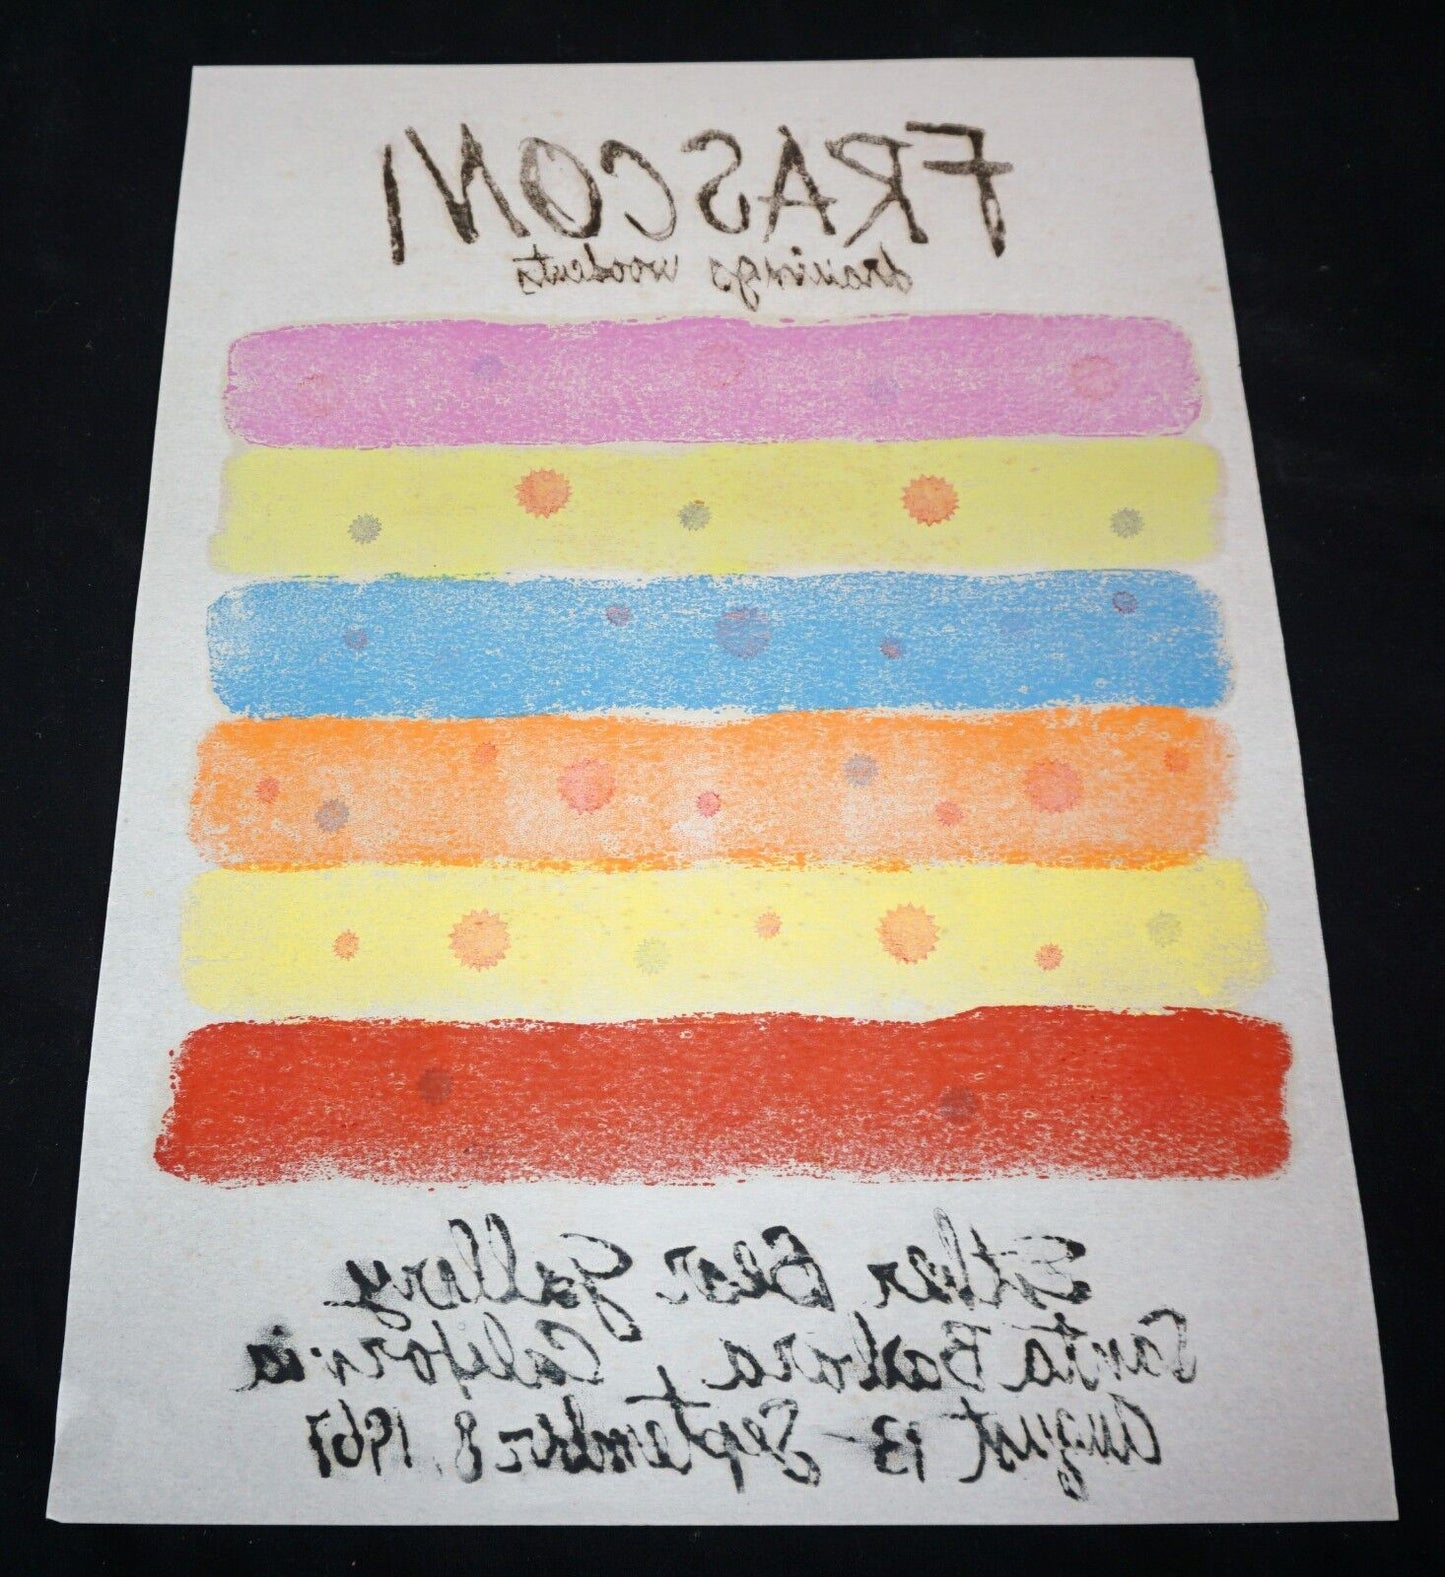 FRASCONI
drawings woodcuts
Esther Bear Gallery
Santa Barbara, California
August 13 - September 8, 1967